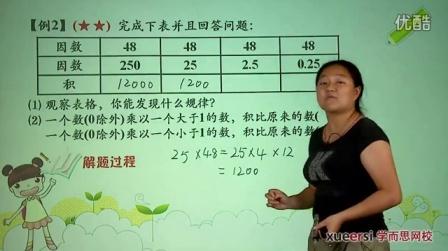 优酷
【例2】(★★) 完成下表并且回答问题:
因数 48 48 48 48
因数 250 25 2.5 0.25
积 12000 1200
(1) 观察表格，你能发现什么规律?
(2) 一个数(0除外)乘以一个大于1的数，积比原来的数(
一个数(0除外)乘以一个小于1的数，积比原来的数(
解题过程
25×48=25×4×12
=1200
xueersi 学而思网校